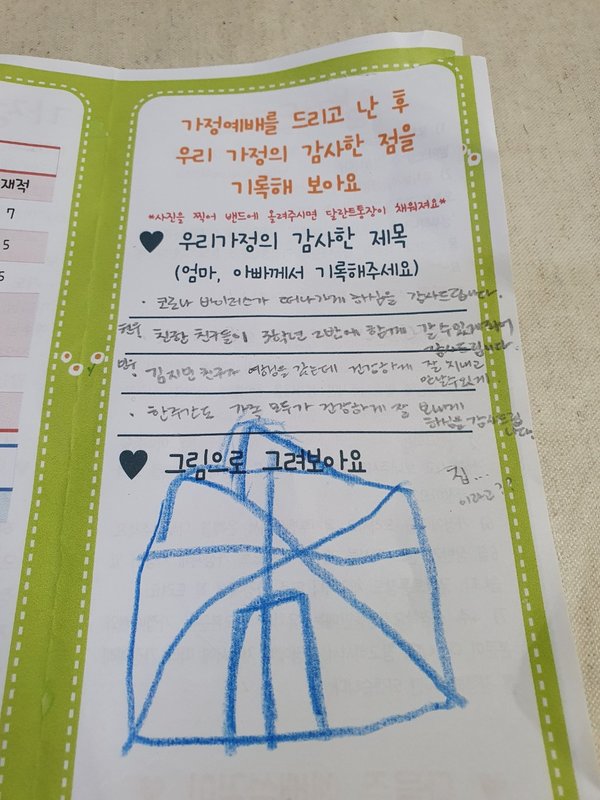 가정예배를 드리고 난 후
우리 가정의 감사한 점을
기록해 보아요
*사진을 찍어 밴드에 올려주시면 달란트통장이 채워져요*
♥ 우리가정의 감사한 제목
(엄마, 아빠께서 기록해주세요)
· 코로나 바이러스가 떠나가게 하심을 감사드립니다.
친한 친구들이 3학년 2반에 함께 갈 수 있게 하여
감사드립니다.
김지민 친구가 여행을 갔는데 건강하게 잘 지내고
만날수있게.
· 한주간도 가족 모두가 건강하게 잘 보내게
하심을 감사드립니다.
♥ 그림으로 그려보아요
집...
이라고??
재적
7
5
5